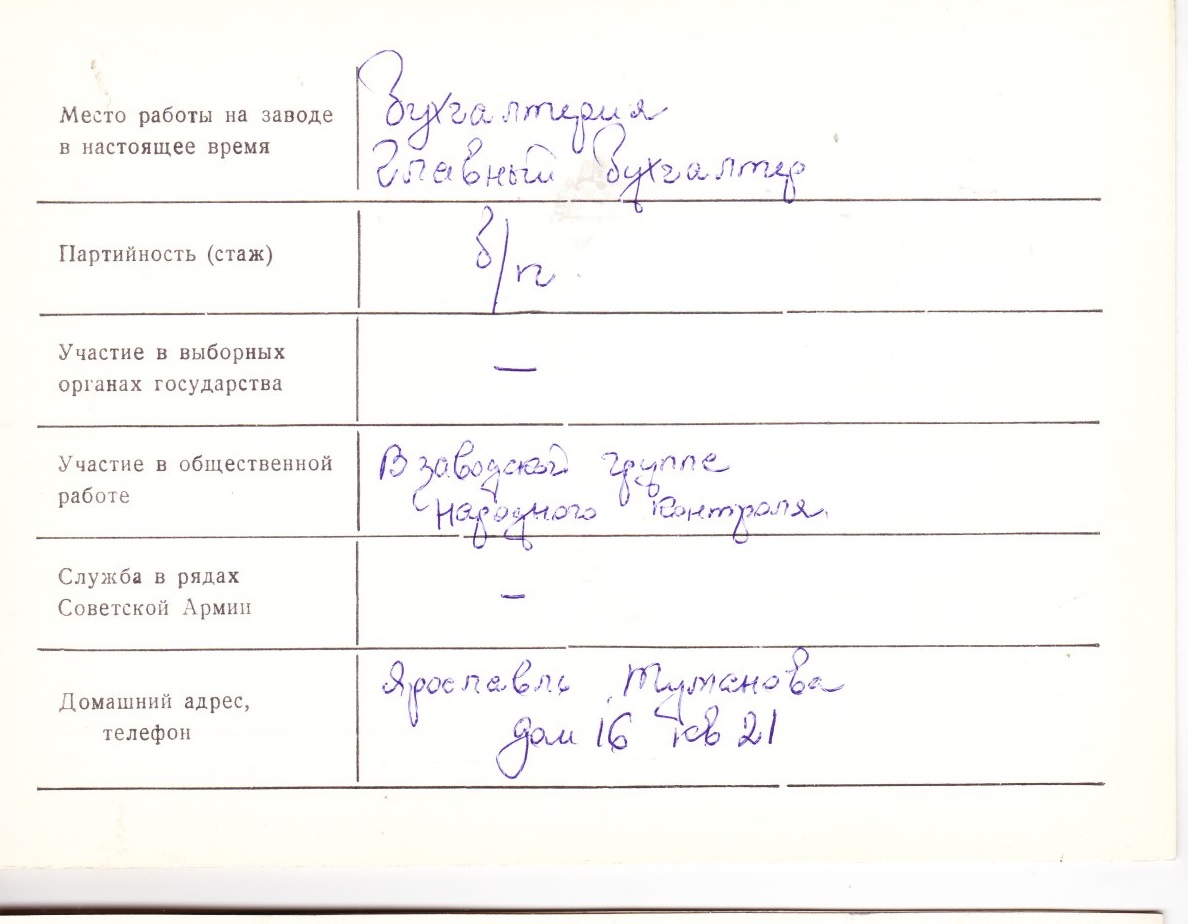 Место работы на заводе
в настоящее время
Бухгалтерия
Главный бухгалтер
Партийность (стаж)
б/п
Участие в выборных
органах государства
—
Участие в общественной
работе
В заводской группе
народного контроля.
Служба в рядах
Советской Армии
–
Домашний адрес,
телефон
Ярославль, Туманова
дом 16 кв 21